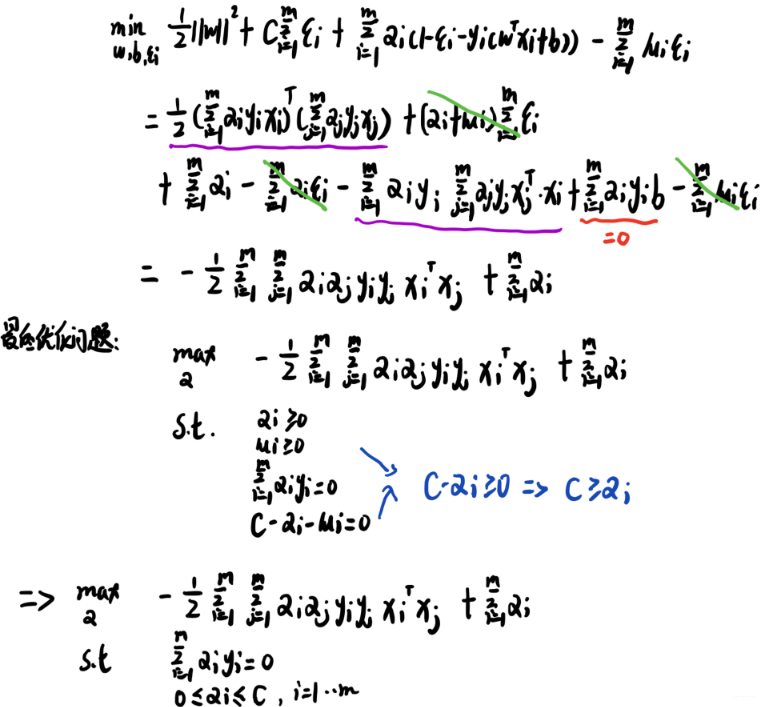 min_{w,b,ξi} 1/2||w||² + C∑_{i=1}^{m} ξi + ∑_{i=1}^{m} αi(1-ξi-yi(wᵀxi+b)) - ∑_{i=1}^{m} μiξi
= 1/2(∑_{i=1}^{m} αiyixi)ᵀ(∑_{j=1}^{m} αjyjxj) + (αi+μi)∑_{i=1}^{m} ξi
+ ∑_{i=1}^{m} αi - ∑_{i=1}^{m} αiξi - ∑_{i=1}^{m} αiyi ∑_{j=1}^{m} αjyjxjᵀ·xi + ∑_{i=1}^{m} αiyib - ∑_{i=1}^{m} μiξi
=0
= - 1/2 ∑_{i=1}^{m} ∑_{j=1}^{m} αiαjyiyj xiᵀxj + ∑_{i=1}^{m} αi
最终优化问题:
max_α - 1/2 ∑_{i=1}^{m} ∑_{j=1}^{m} αiαjyiyj xiᵀxj + ∑_{i=1}^{m} αi
s.t. αi≥0
μi≥0
∑_{i=1}^{m} αiyi=0
C-αi-μi=0
C-αi≥0 => C≥αi
=> max_α - 1/2 ∑_{i=1}^{m} ∑_{j=1}^{m} αiαjyiyj xiᵀxj + ∑_{i=1}^{m} αi
s.t ∑_{i=1}^{m} αiyi=0
0≤αi≤C, i=1…m